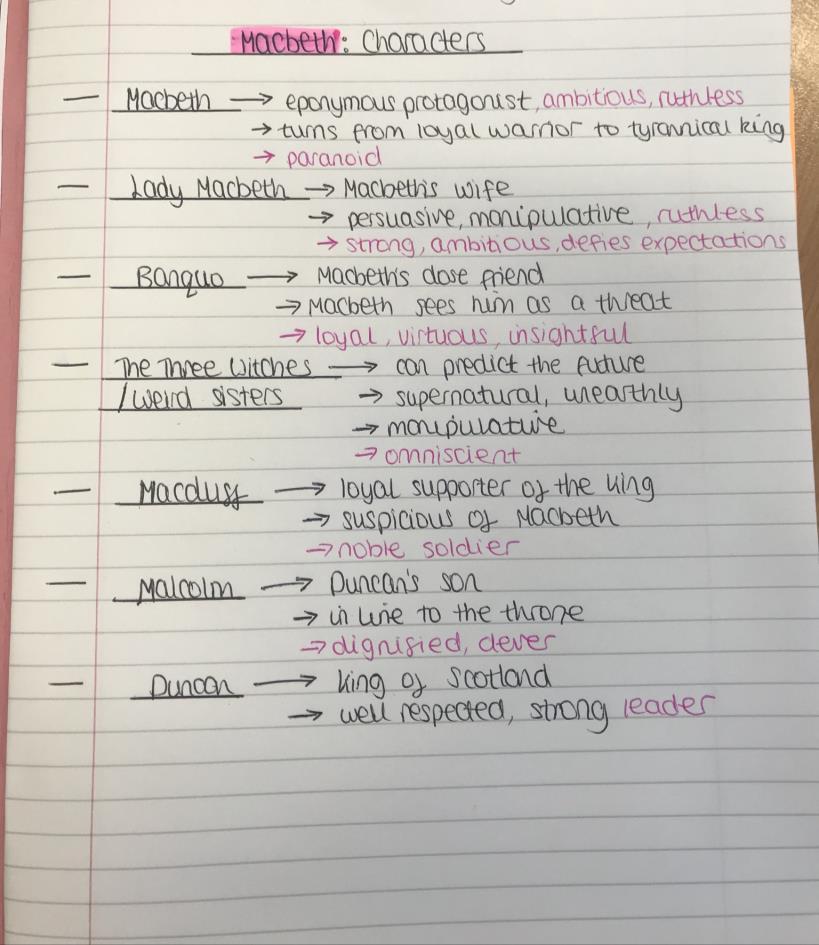 Macbeth: Characters
— Macbeth → eponymous protagonist, ambitious, ruthless
→ turns from loyal warrior to tyrannical king
→ paranoid
— Lady Macbeth → Macbeth's wife
→ persuasive, manipulative, ruthless
→ strong, ambitious, defies expectations
— Banquo → Macbeth's close friend
→ Macbeth sees him as a threat
→ loyal, virtuous, insightful
— The Three Witches → can predict the future
/weird sisters → supernatural, unearthly
→ manipulative
→ omniscient
— Macduff → loyal supporter of the king
→ suspicious of Macbeth
→ noble soldier
— Malcolm → Duncan's son
→ in line to the throne
→ dignified, clever
— Duncan → king of Scotland
→ well respected, strong leader